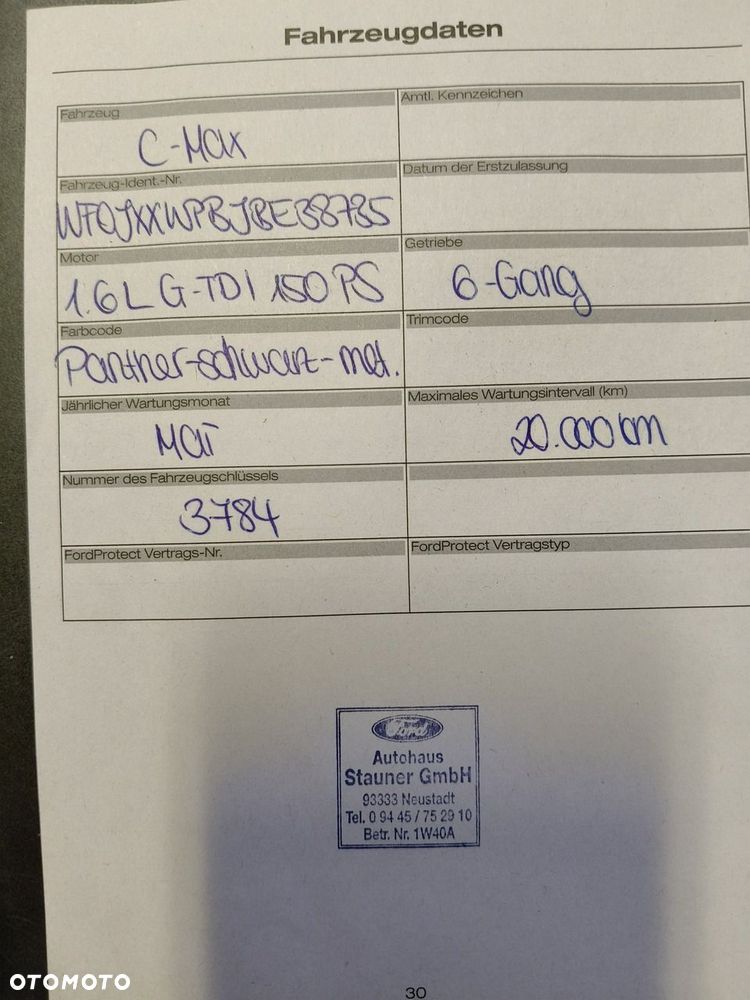 Fahrzeugdaten
Fahrzeug
Amtl. Kennzeichen
C-Max
Fahrzeug-Ident.-Nr.
Datum der Erstzulassung
WF0JXXWPBJBE38785
Motor
Getriebe
1.6L G-TDI 150PS
6-Gang
Farbcode
Trimcode
Panther-schwarz-met.
Jährlicher Wartungsmonat
Maximales Wartungsintervall (km)
Mai
20.000 km
Nummer des Fahrzeugschlüssels
3784
FordProtect Vertrags-Nr.
FordProtect Vertragstyp
Ford
Autohaus
Stauner GmbH
93333 Neustadt
Tel. 0 94 45 / 75 29 10
Betr. Nr. 1W40A
30
OTOMOTO